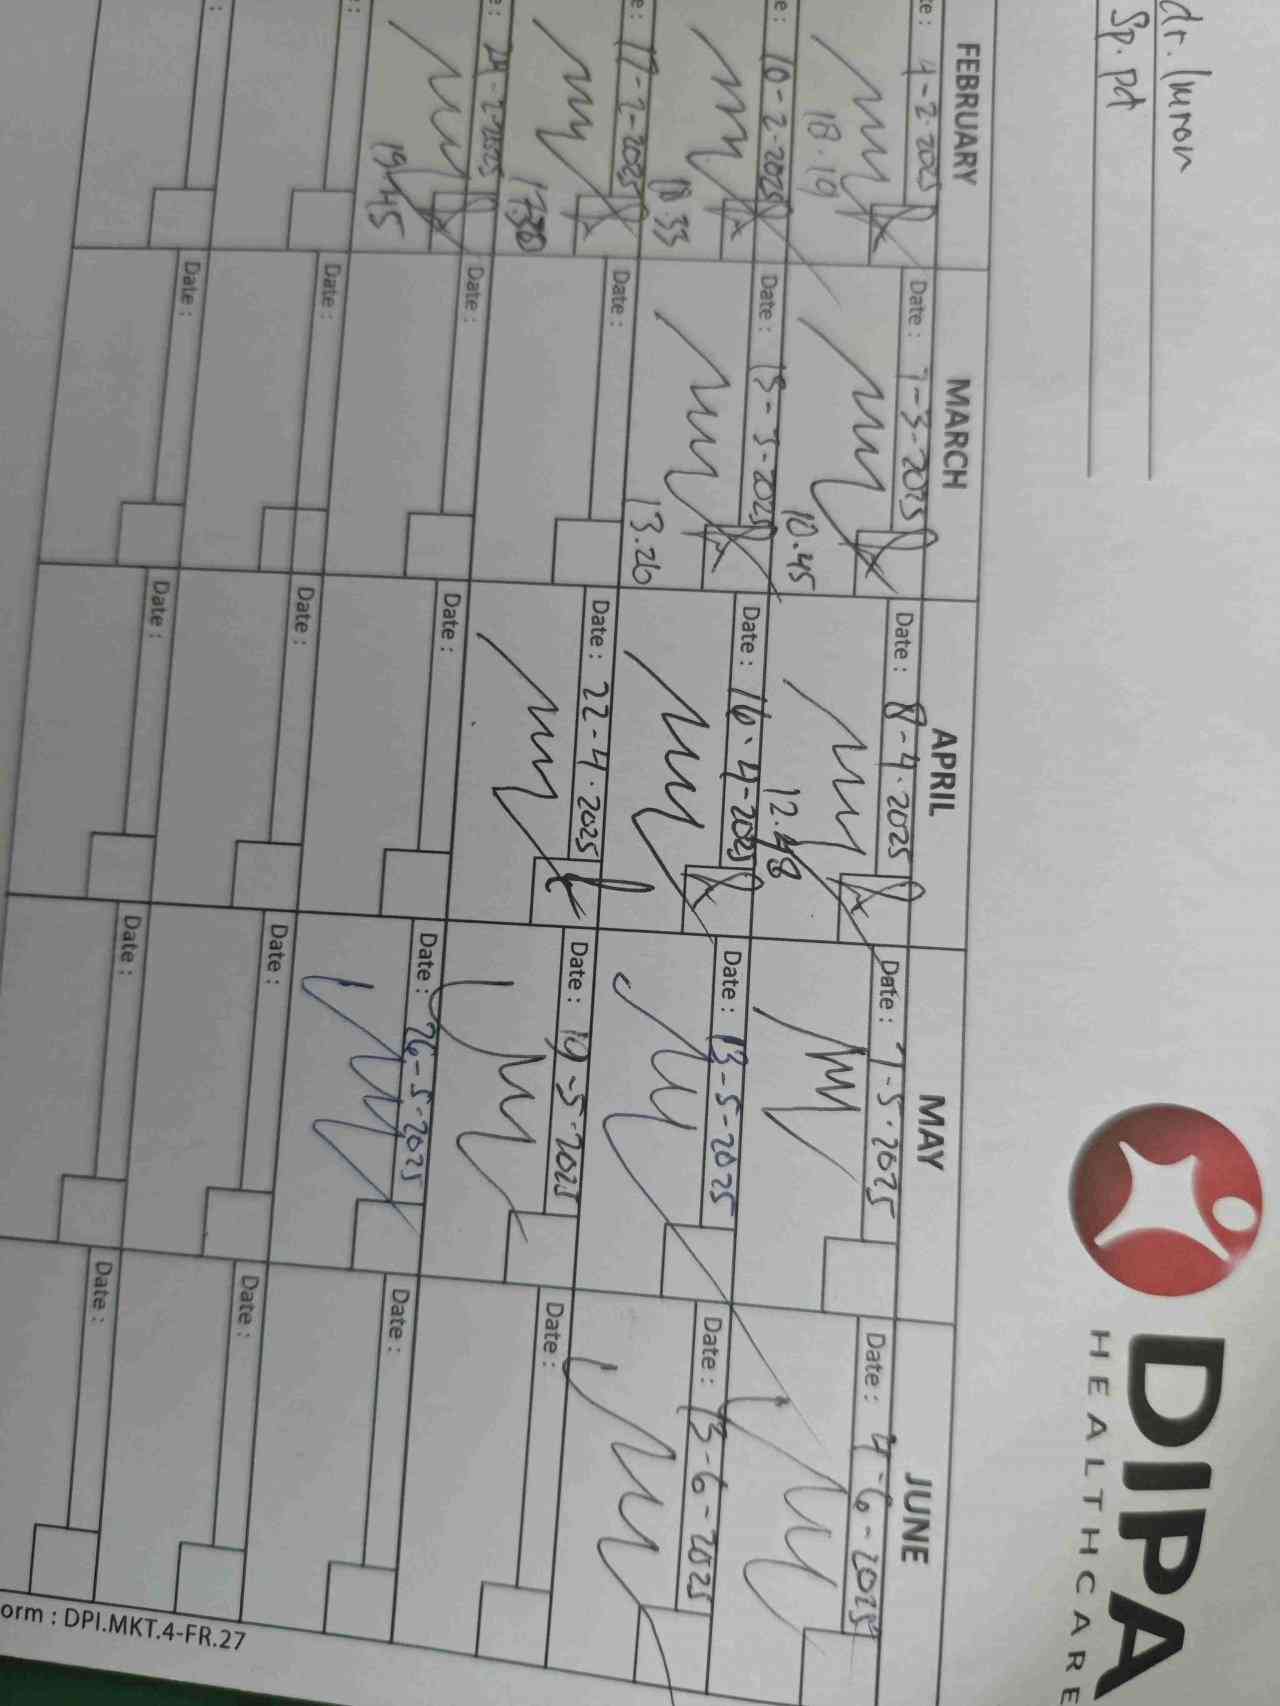 dr. Imron
Sp. pd
DIPA
HEALTHCARE
FEBRUARY
MARCH
APRIL
MAY
JUNE
te : 4-2-2025
18.19
Date : 7-3-2025
10.45
Date : 8-4-2025
12.48
Date : 7-5-2025
Date : 4-6-2025
e : 10-2-2025
18.33
Date : 15-3-2025
13.26
Date : 16-4-2025
Date : 13-5-2025
Date : 13-6-2025
e : 17-2-2025
17.30
Date :
Date : 22-4-2025
Date : 19-5-2025
Date :
e : 24-2-2025
19.45
Date :
Date :
Date : 26-5-2025
Date :
:
Date :
Date :
Date :
Date :
:
Date :
Date :
Date :
Date :
orm : DPI.MKT.4-FR.27